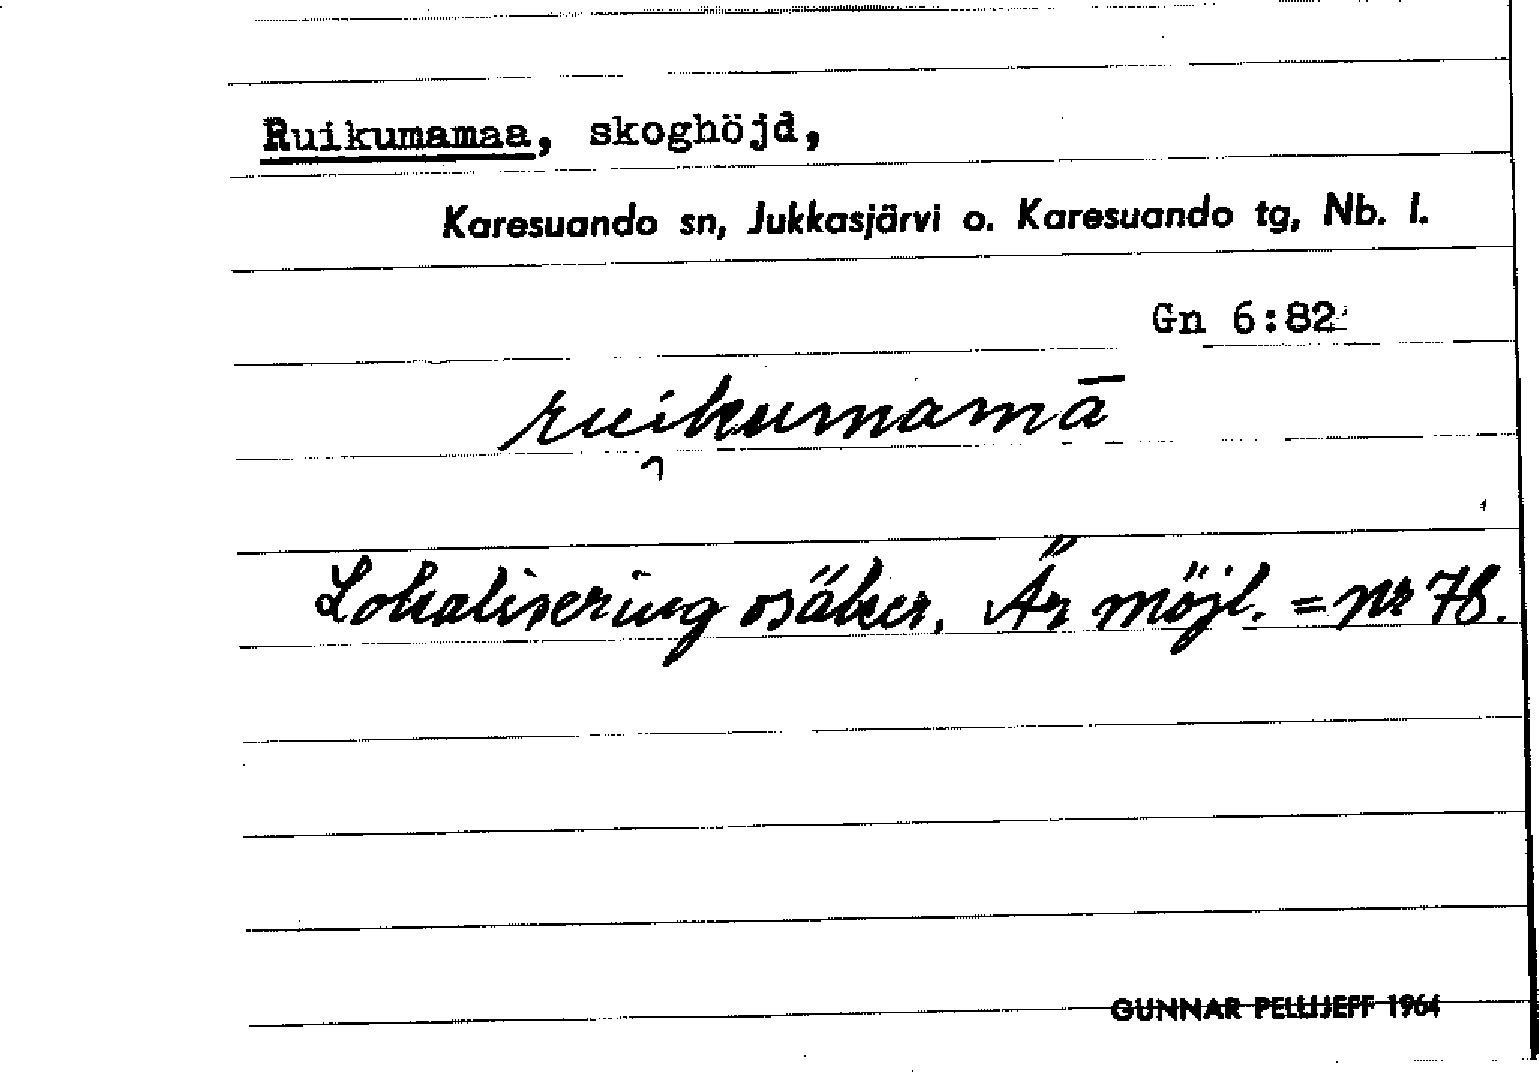 Ruikumamaa, skoghöjd,
Karesuando sn, Jukkasjärvi o. Karesuando tg, Nb. l.
Gn 6:82
rui̯kumamā
Lokalisering osäker. Är möjl. = nr 78.
GUNNAR PELLIJEFF 1964